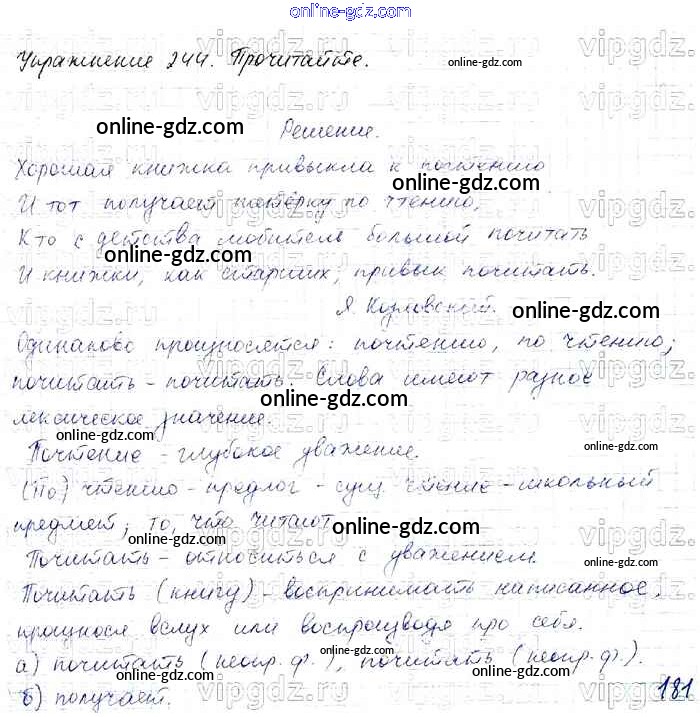 online-gdz.com
Упражнение 244. Прочитайте.
online-gdz.com
online-gdz.com
Решение.
Хорошая книжка привыкла к почтению
online-gdz.com
И тот получает пятёрку по чтению,
online-gdz.com
Кто с детства любитель большой почитать
online-gdz.com
И книжки, как старших, привык почитать.
Я. Козловский.
online-gdz.com
Одинаково произносятся: почтению, по чтению;
online-gdz.com
почитать - почитать. Слова имеют разное
online-gdz.com
лексическое значение.
online-gdz.com
Почтение - глубокое уважение.
online-gdz.com
(По) чтению - предлог - сущ. чтение - школьный
предмет; то, что читают
online-gdz.com
Почитать - относиться с уважением.
online-gdz.com
Почитать (книгу) - воспринимать написанное,
произнося вслух или воспроизводя про себя.
online-gdz.com
а) почитать (неопр. ф.), почитать (неопр. ф.).
б) получает.
181
vipgdz.ru